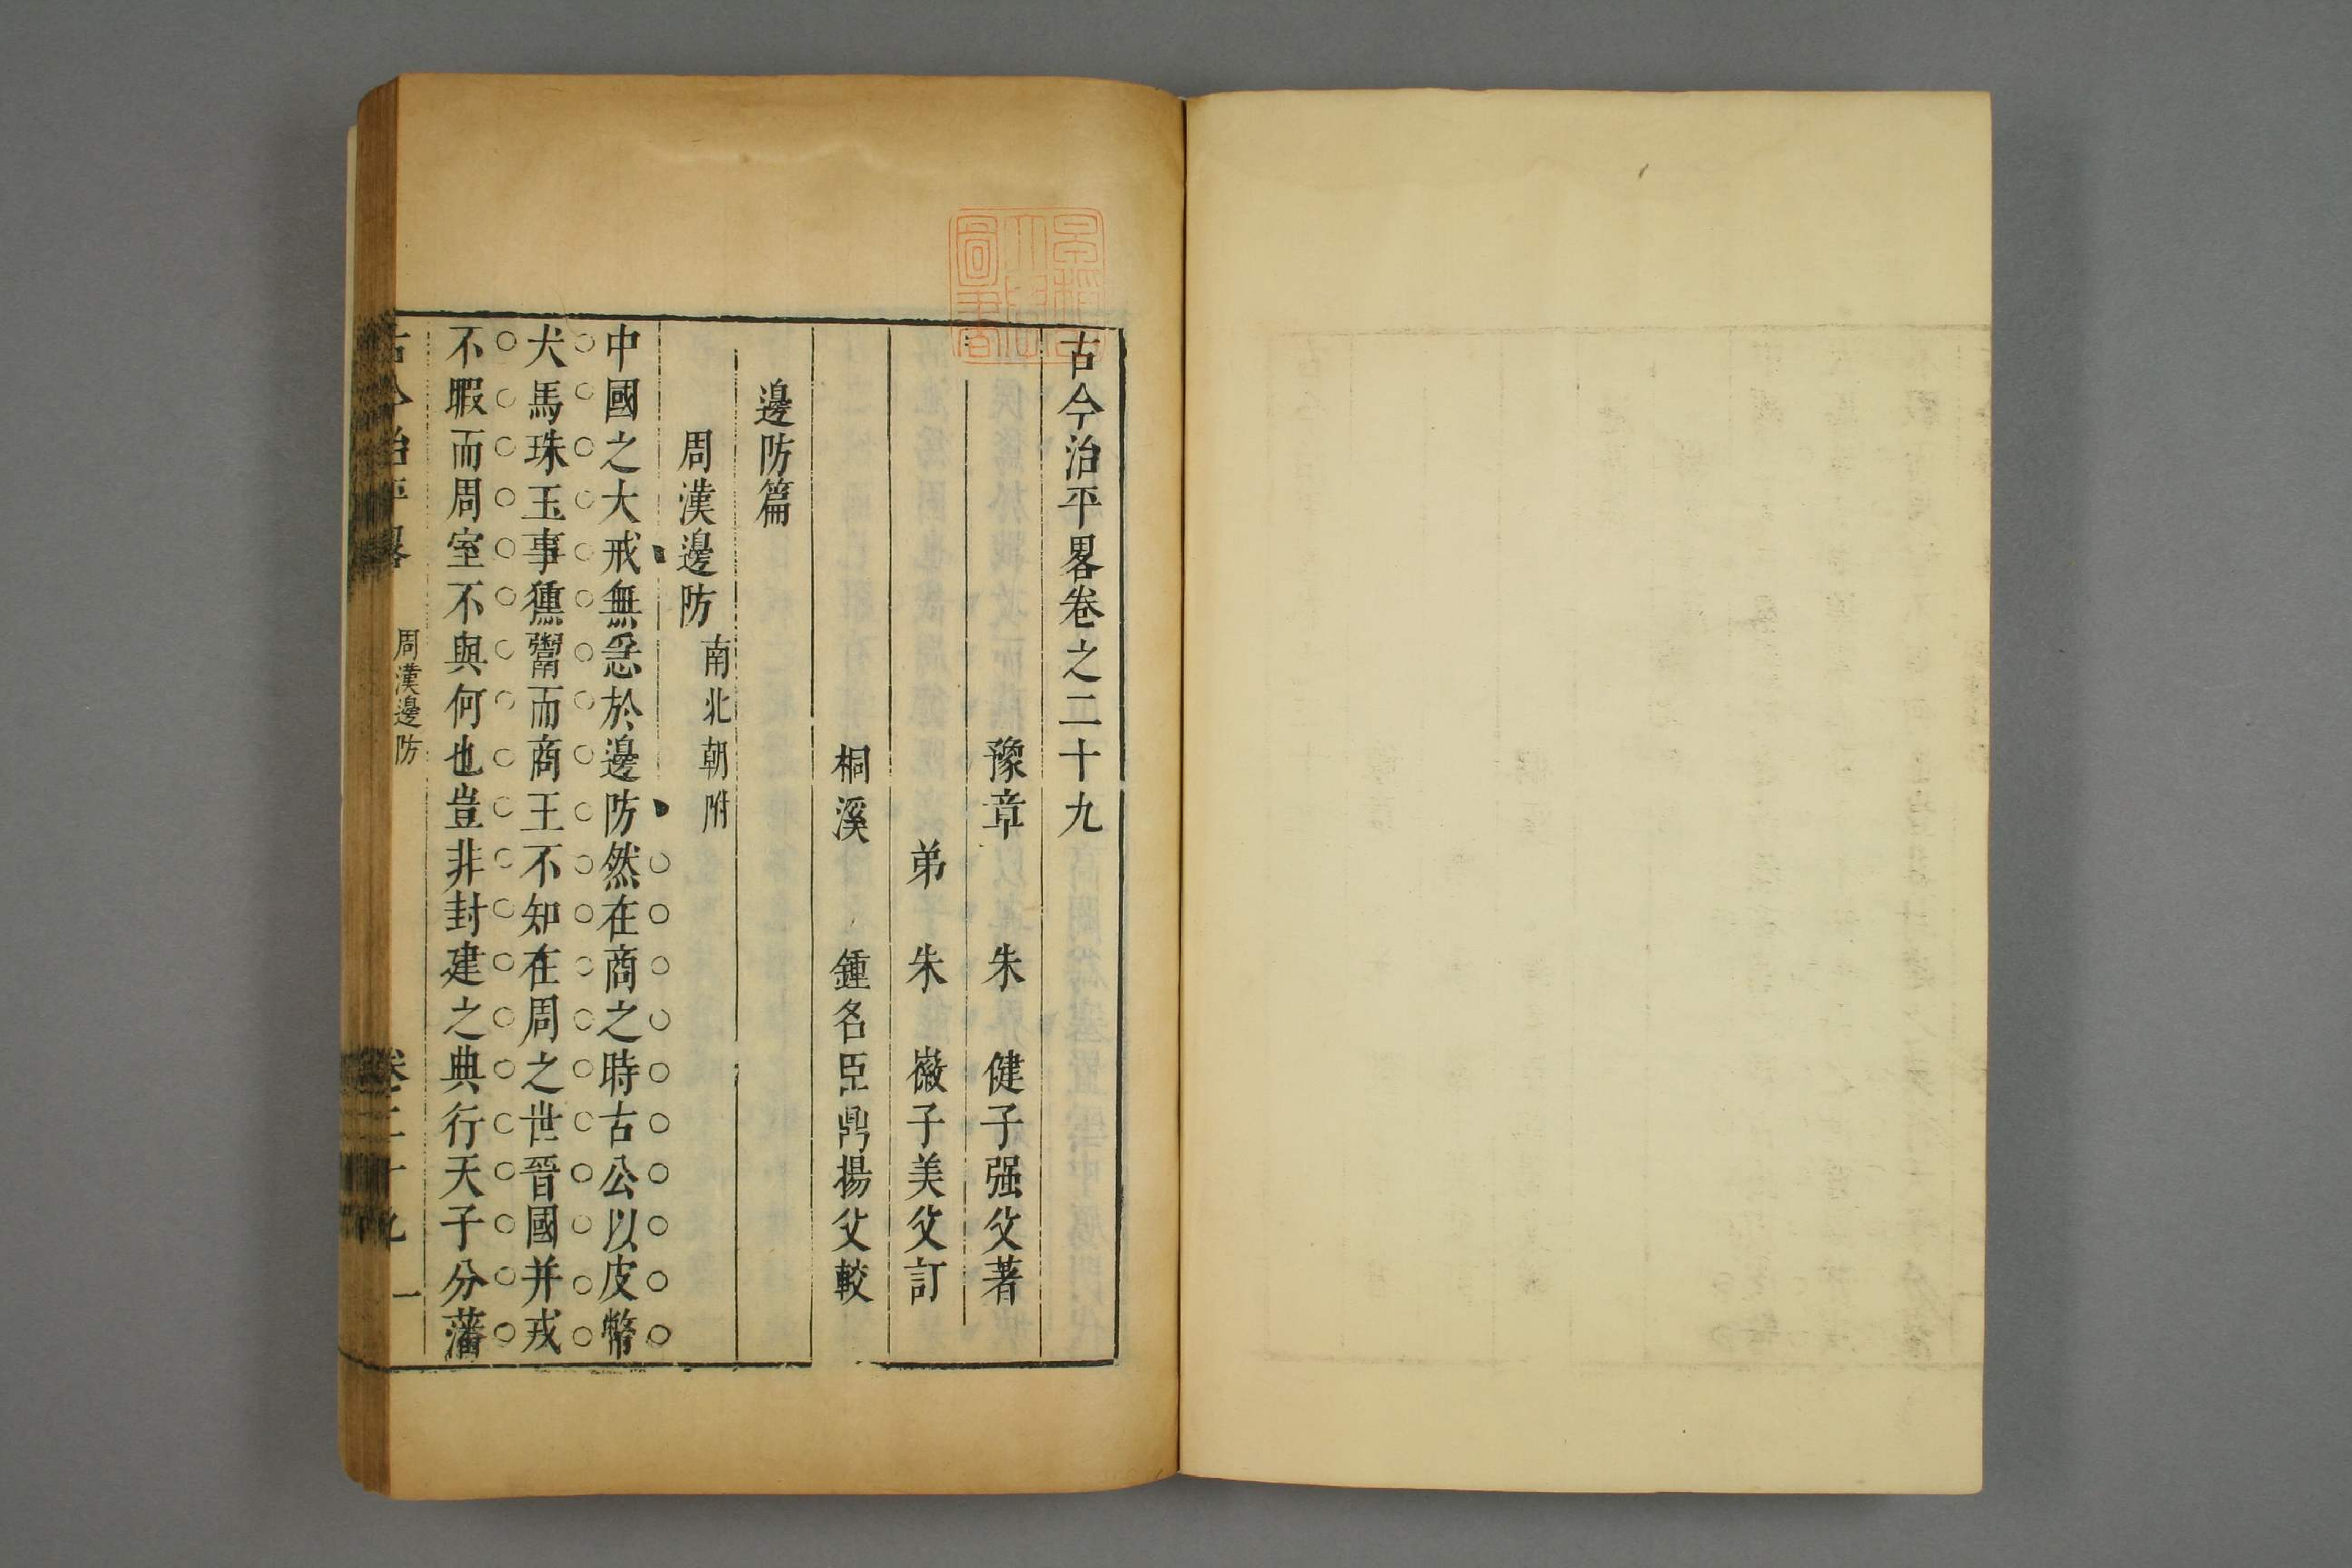 古今治平畧卷之二十九
豫章 朱 健子强父著
弟 朱 徽子美父訂
桐溪 鍾名臣鼎揚父較
邊防篇
周漢邊防南北朝附
中國之大戒無急於邊防然在商之時古公以皮幣
犬馬珠玉事獯鬻而商王不知在周之世晉國并戎
不暇而周室不與何也豈非封建之典行天子分藩
古今治平畧 周漢邊防 卷二十九 一